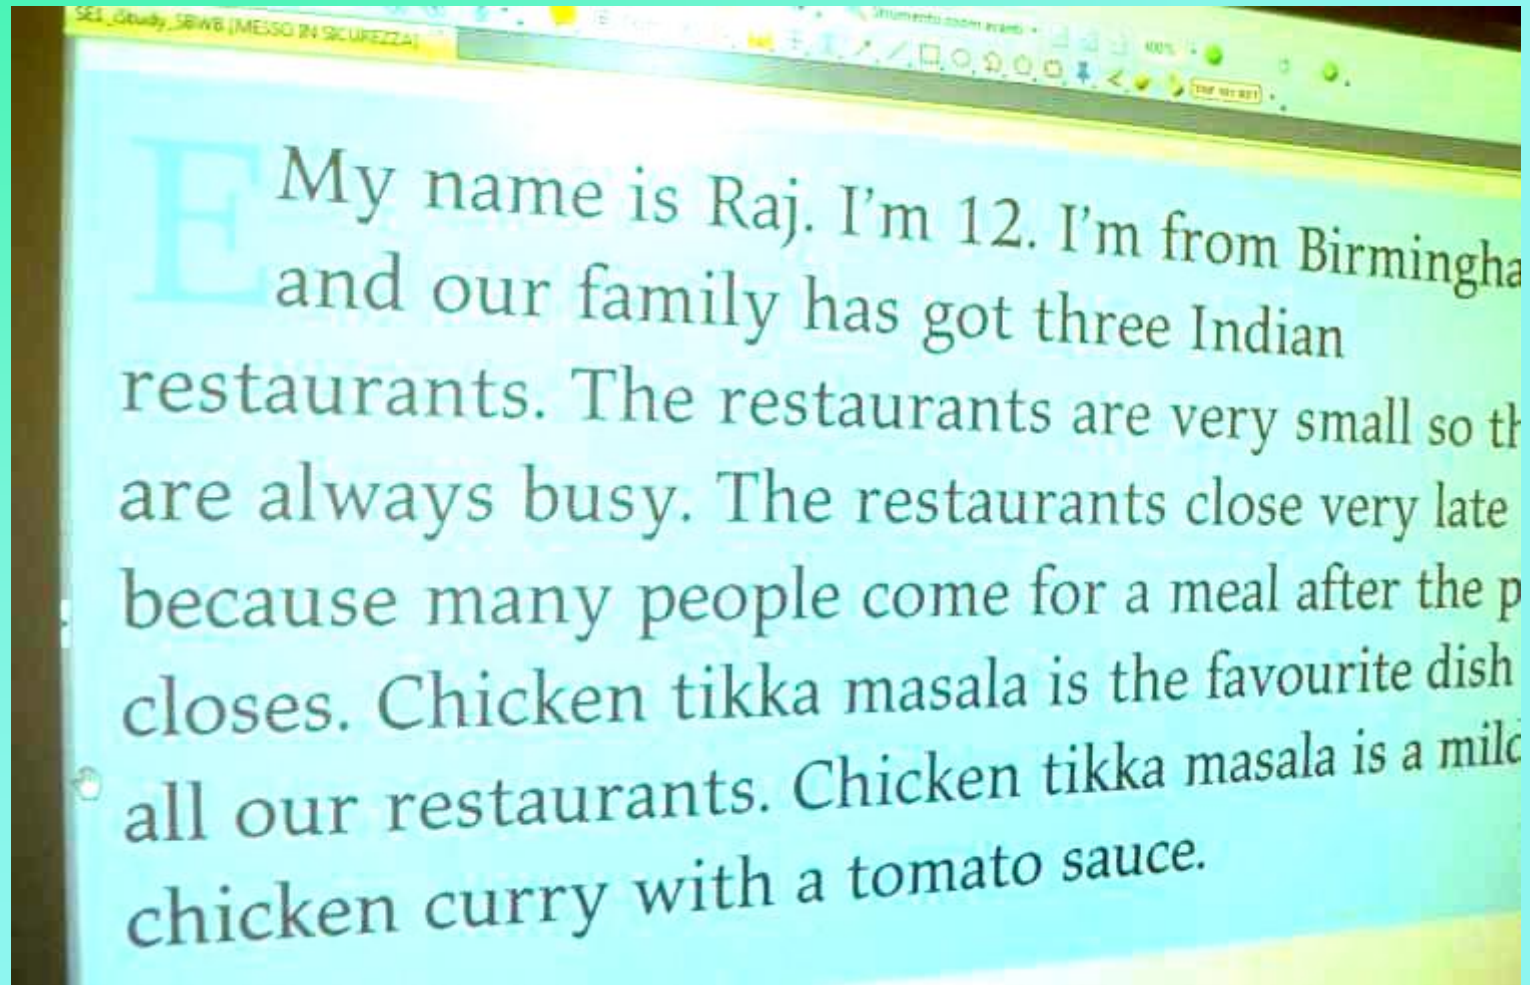 SE1_iStudy_SBWB [MESSO IN SICUREZZA]
Strumento zoom avanti
400%
TOP SECRET
E
My name is Raj. I'm 12. I'm from Birmingha
and our family has got three Indian
restaurants. The restaurants are very small so th
are always busy. The restaurants close very late
because many people come for a meal after the p
closes. Chicken tikka masala is the favourite dish
all our restaurants. Chicken tikka masala is a mild
chicken curry with a tomato sauce.